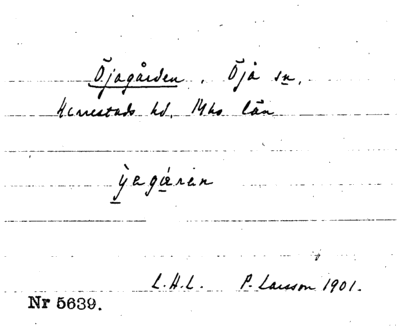 Öjagården, Öja sn,
Herrestads hd, Mhs län
L.H.L. P. Larsson 1901.
Nr 5639.